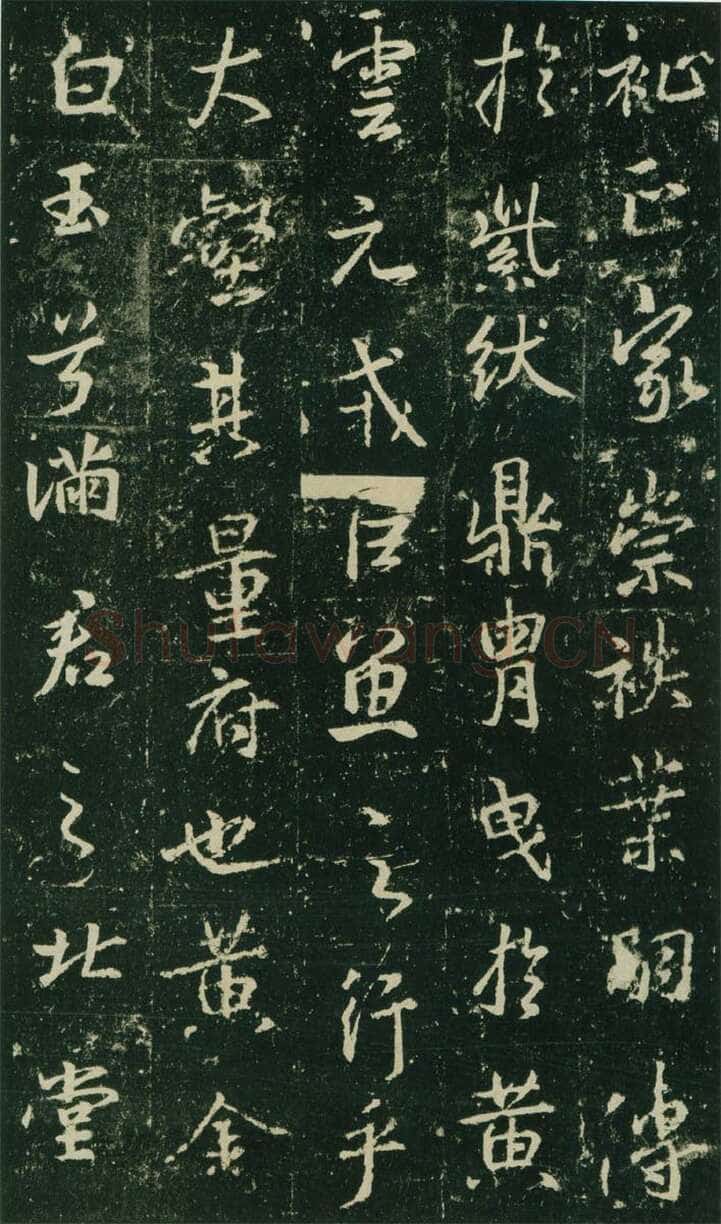 祉正家崇袟葉嗣傳
於紫紱鼎胄曳於黃
雲元戎巨魚之行乎
大壑其量府也黃金
白玉兮滿君之北堂
Shufawang.CN